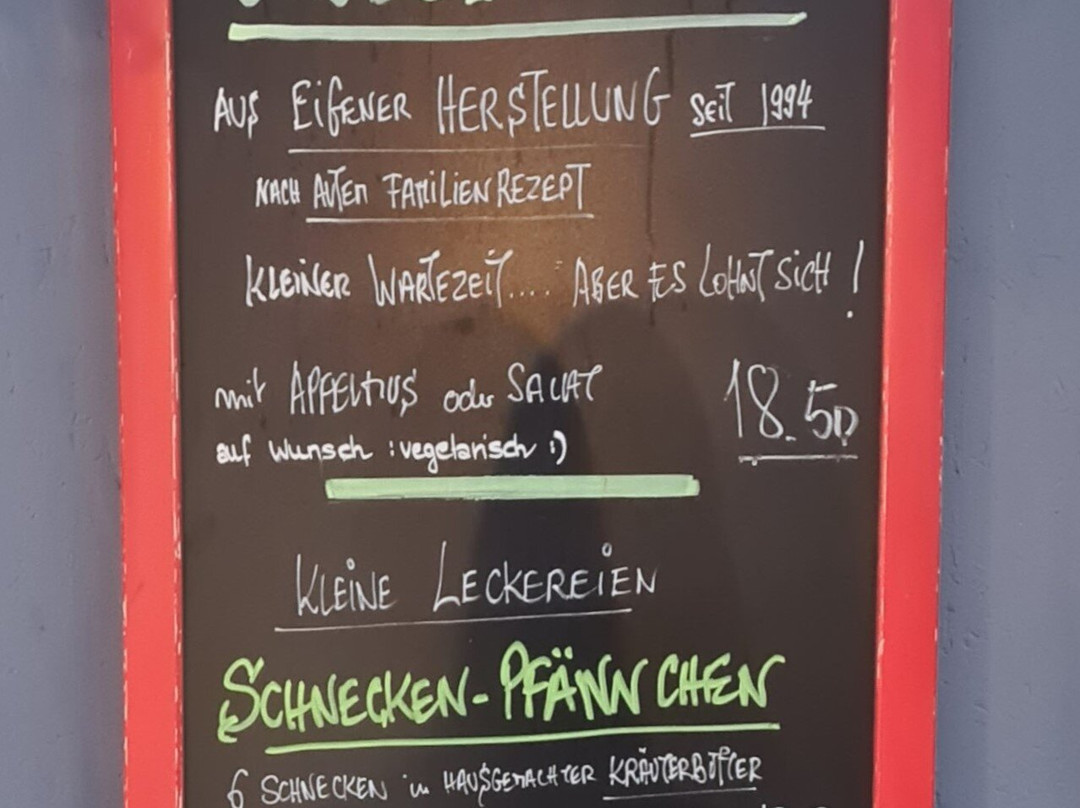 AUS EIGENER HERSTELLUNG SEIT 1994
NACH ALTEM FAMILIENREZEPT
KLEINER WARTEZEIT.... ABER ES LOHNT SICH !
mit APFELMUS oder SALAT 18.50
auf Wunsch : vegetarisch :)
KLEINE LECKEREIEN
SCHNECKEN-PFÄNNCHEN
6 SCHNECKEN in HAUSGEMACHTER KRÄUTERBUTTER